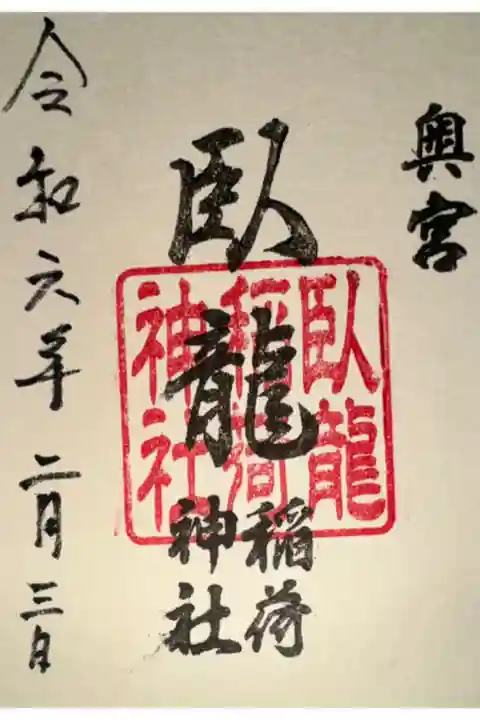 奥宮
臥龍
稲荷
神社
臥龍
稲荷
神社
令和六年 二月三日